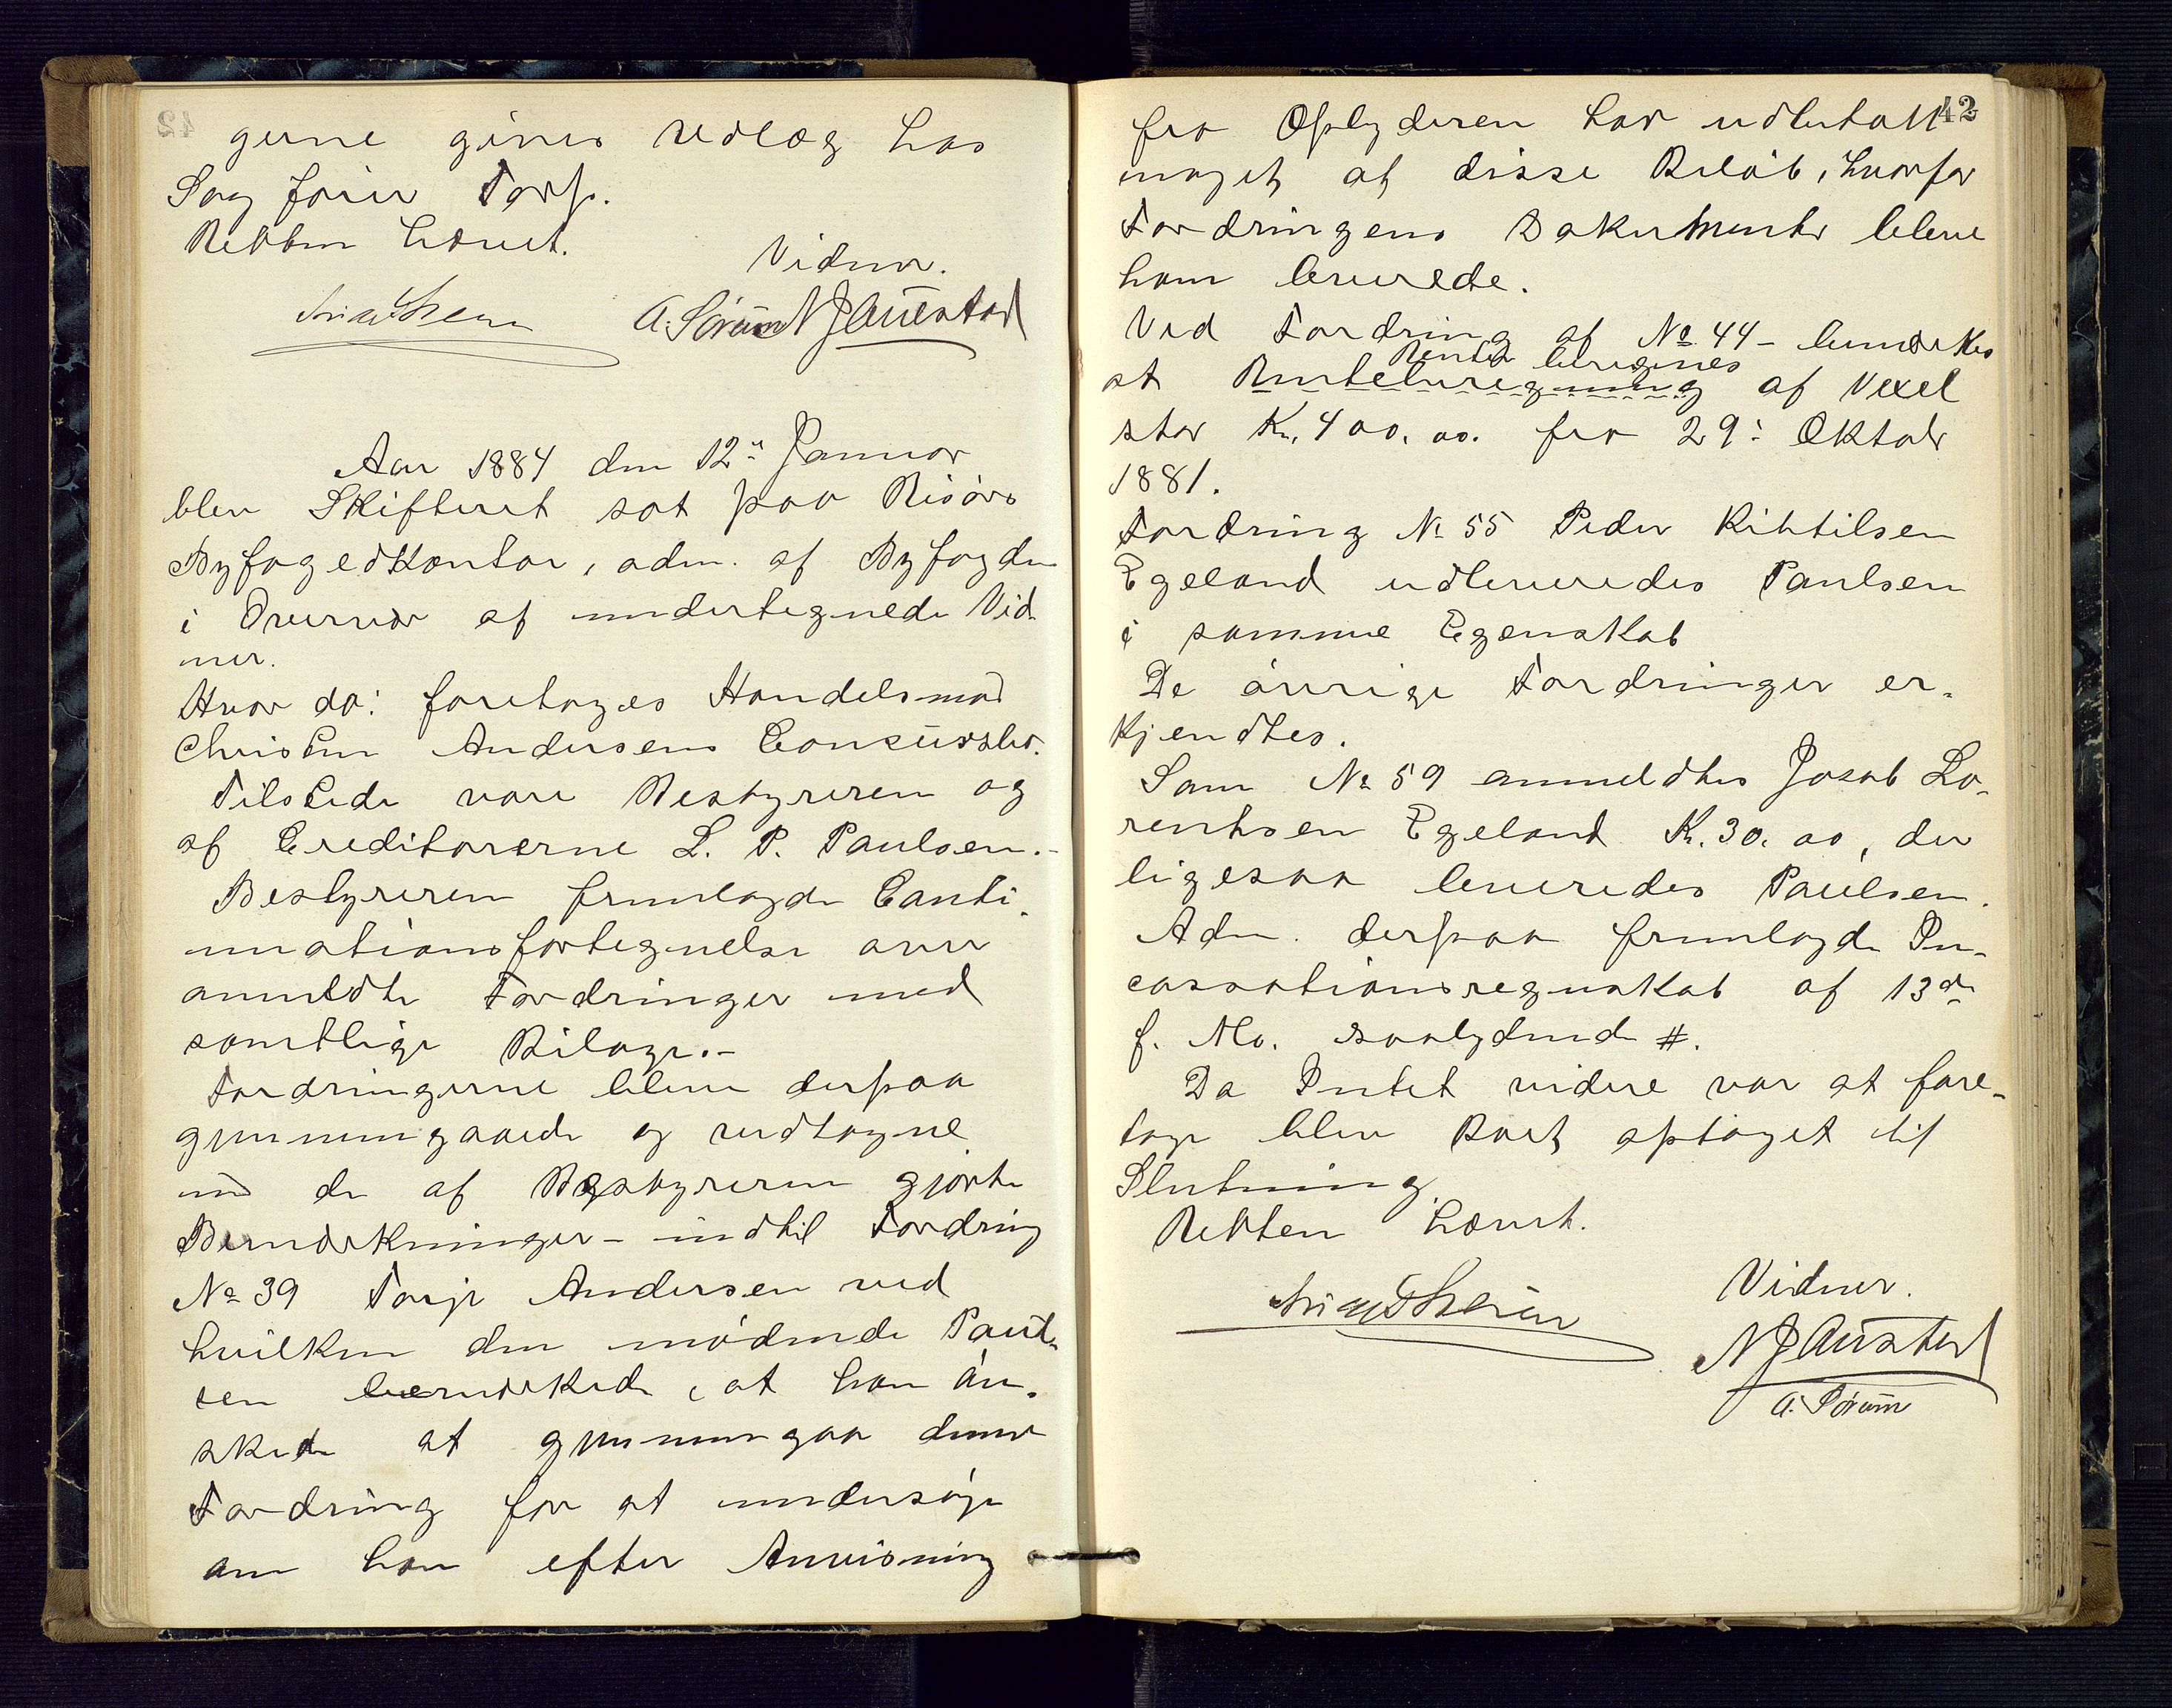 gerne gives Udlæg hos
Sagfører Torp.
Retten hævet.
Vidner.
A. Sørum N J Austad
Aar 1884 den 12te Januar
blev Skifteret sat paa Risørs
Byfogedkontor, adm. af Byfogden
i Overvær af undertegnede Vid
ner.
Hvor da: foretoges Handelsmand
Christen Andersens Concursbo.
Tilstede vare Bestyreren og
af Creditorerne L. P. Paulsen.-
Bestyreren fremlagde Conti-
nuationsfortegnelse over
anmeldte Fordringer med
samtlige Bilage.-
Fordringerne bleve derpaa
gjennemgaaede og vedtagne
med de af Bestyreren gjorte
Bemærkninger - indtil Fordring
No 39 Terje Andersen ved
hvilken den mødende Paul-
sen bemærkede, at han øn-
skede at gjennemgaa denne
Fordring for at undersøge
om han efter Anvisning
42
fra Opbyderen har udbetalt
noget af disse Beløb, hvorfor
Fordringens Dokumenter bleve
ham leverede.
Ved Fordring af No 44 - bemærkes
Renter beregnes
at Renteberegning af Vexel
stor Kr. 400.00. fra 29: Oktob
1881.
Fordring No 55 Peder Kittilsen
Egeland udleveredes Paulsen
i samme Egenskab
De øvrige Fordringer er-
kjendtes.
Som No 59 anmeldtes Josab Lo-
rentsen Egeland Kr. 30.00, der
ligesaa leveredes Paulsen.
Adm. derpaa fremlagde In-
cassationsregnskab af 13de
f. Md. saalydende #.
Da Intet videre var at fore-
tage blev Boet optaget til
Slutning
Retten hævet.
Vidner.
N J Austad
A. Sørum